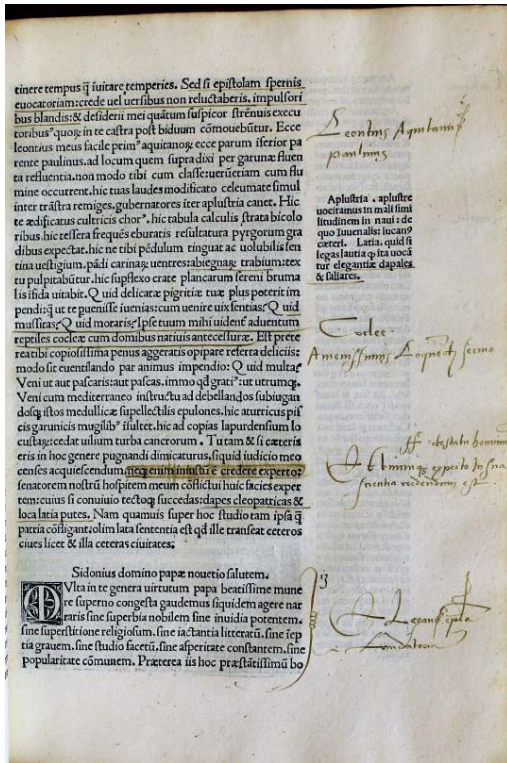 tinere tempus q̃ iuitare temperies. Sed si epistolam spernis
euocatoriam: crede uel uersibus non reluctaberis. impulsori
bus blandis: & desiderii mei quãtum suspicor strẽnuis execu
toribus quoꝝ in te castra post biduum cõmouebũtur. Ecce
leontius meus facile primꝰ aquitanoꝝ: ecce parum iferior pa
rente paulinus. ad locum quem supra dixi per garunæ fluen
ta refluentia. non modo tibi cum classe: uerũetiam cum flu
mine occurrent. hic tuas laudes modificato celeumate simul
inter trãstra remiges. gubernatores iter aplustria canet. Hic
te ædificatus cultricis chorꝰ. hic tabula calculis strata bicolo
ribus. hic tessera frequẽs eburatis resultatura pyrgorum gra
dibus expectat. hic ne tibi pẽdulum tinguat ac uolubilis sen
tina uestigium. pãdi carinaꝝ uentres: abiegnaꝝ trabium: tex
tu pulpitabũtur. hic supflexo crate plancarum sereni bruma
lis ifida uitabit. Quid delicatæ pigritiæ tuæ plus poterit im
pendi: q̃ ut te puenisse iuenias: cum uenire uix sentias: Quid
mussitas: Quid moraris: Ipse tuum mihi uidenť aduentum
reptiles cocleæ cum domibus natiuis antecessuræ. Est prete
rea tibi copiosissima penus aggeratis opipare referta deliciis:
modo sit euentilando par animus impendio: Quid multaꝰ
Veni ut aut pascaris: aut pascas. immo qď gratiꝰ: ut utrumq.
Veni cum mediterraneo instructu ad debellandos subiugan
dosq̨ istos medullicæ supellectilis epulones. hic aturricus pis
cis garunicis mugilibꝰ isultet. hic ad copias lapurdensium lo
custaꝝ: cedat uilium turba cancrorum. Tu tam & si cæteris
eris in hoc genere pugnandi dimicaturus. siquid iudicio meo
censes acquiescendum. neq enim iniustũ ẽ credere experto:
senatorem nostrũ hospitem meum cõflictui huic facies exper
tem: cuius si conuiuio tectoq̨ succedas: dapes cleopatricas &
loca latia putes. Nam quamuis super hoc studio tam ipsa q̃
patria cõfligant. olim lata sententia est qď ille transeat ceteros
ciues licet & illa ceteras ciuitates:
Leontius Aquitanus
paulinus
Aplustria. aplustre
uocitamus in mali simi
litudinem in naui: de
quo Iuuenalis: lucanꝰ
cæteri. Latia. quid si
legas lautia q̨ ita uocã
tur elegantiæ dapales
& saliares.
Coclee.
Sidonius domino papæ nouetio salutem.
MVlta in te genera uirtutum papa beatissime mune
re superno congesta gaudemus siquidem agere nar
raris sine superbia nobilem sine inuidia potentem.
sine superstitione religiosum. sine iactantia litteratũ. sine iẽp
tia grauem. sine studio facetũ. sine asperitate constantem. sine
popularitate cõmunem. Præterea iis hoc præstãtissimũ bo